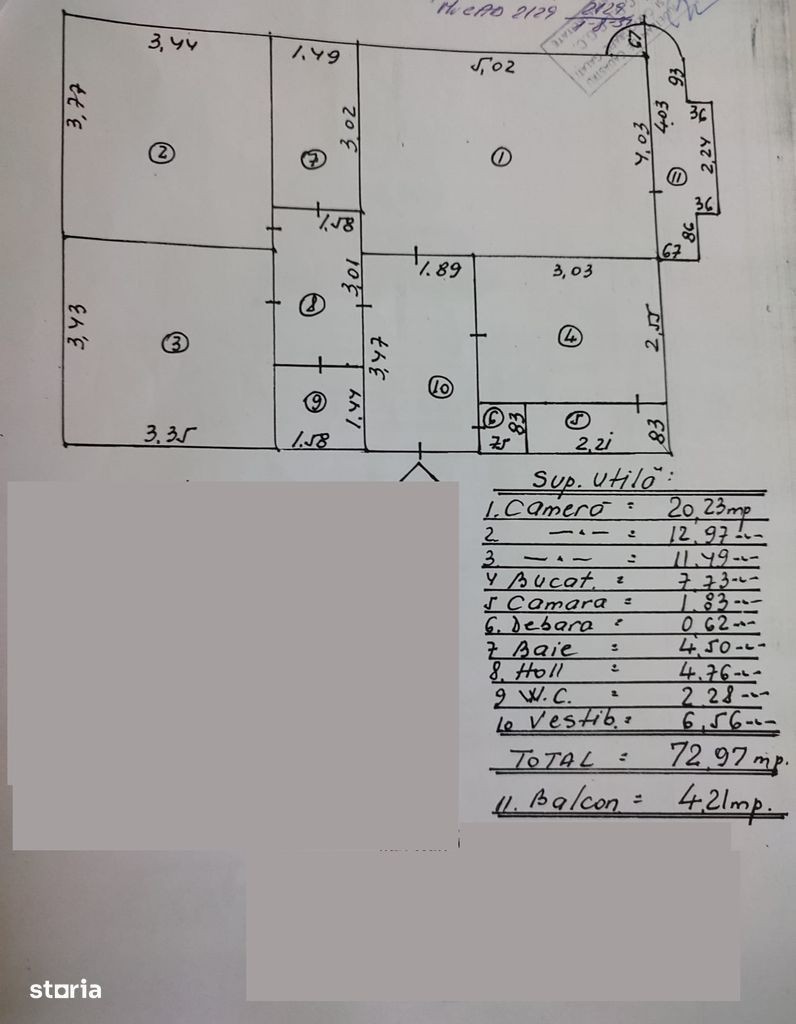 2129
3,44
1.49
5,02
67
93
3,77
3,02
4,03
4.03
36
2,24
②
⑦
①
⑪
36
1.58
86
67
1.89
3,03
3,01
3,43
⑧
④
2,55
③
3,47
⑨
1.44
⑩
⑥
83
⑤
3.35
1.58
75
2,21
83
Sup. utilă:
1. Cameră = 20,23mp
2 —·— = 12.97-·-
3. —·— = 11.49-·-
4 Bucat. = 7,73-·-
5 Camara = 1.83-·-
6. Debara = 0,62-·-
7 Baie = 4,50-·-
8. Holl = 4.76-·-
9 W.C. = 2.28-·-
10 Vestib. = 6,56-·-
TOTAL = 72,97 mp.
11. Balcon = 4,21mp.
storia